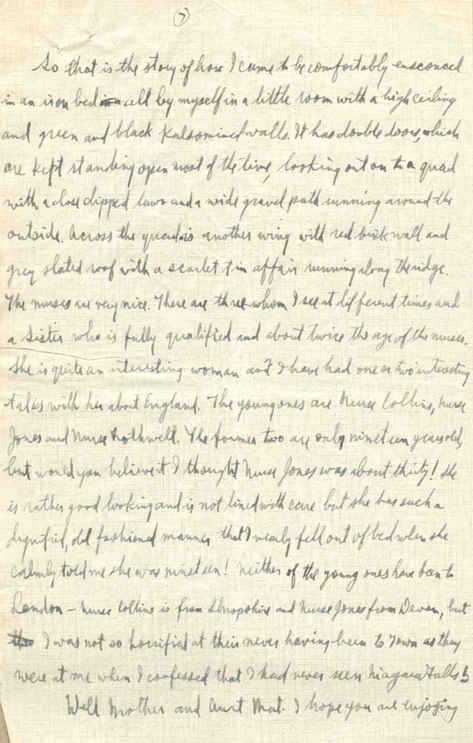 7
So that is the story of how I came to be comfortably ensconced
in an iron bed all by myself in a little room with a high ceiling
and green and black Kalsomined walls. It has double doors, which
are kept standing open most of the time, looking out on to a quad
with a close clipped lawn and a wide gravel path running around the
outside. Across the quad is another wing with red brick wall and
grey slated roof with a scarlet tin affair running along the ridge.
The nurses are very nice. There are three whom I see at different times and
a Sister who is fully qualified and about twice the age of the nurses.
She is quite an interesting woman and I have had one or two interesting
talks with her about England. The young ones are Nurse Collins, Nurse
Jones and Nurse Rothwell. The former two are only nineteen years old,
but would you believe it I thought Nurse Jones was about thirty! She
is rather good looking and is not lined with care but she has such a
dignified, old fashioned manner that I nearly fell out of bed when she
calmly told me she was nineteen! Neither of the young ones have been to
London - Nurse Collins is from Shropshire and Nurse Jones from Devon, but
I was not so horrified at their never having been to Town as they
were at me when I confessed that I had never seen Niagara Falls!
Well Mother and Aunt Mat. I hope you are enjoying